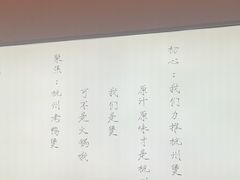 初心：我们力推杭州煲
原汁原味才是杭
我们是煲
可不是火锅欸
聚焦：杭州老鸭煲